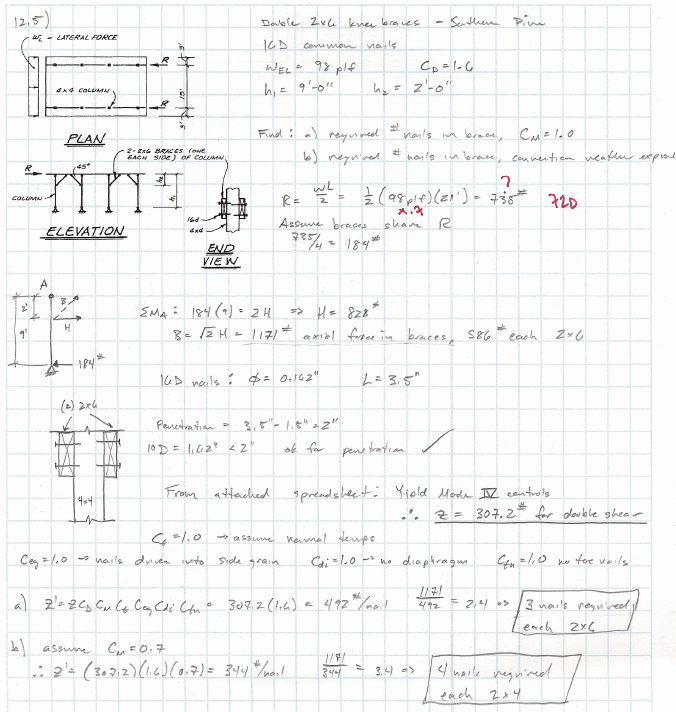 12.5)
Double 2x6 knee braces - Southern Pine
16D common nails
WEL = 98 plf CD = 1.6
h1 = 9'-0" h2 = 2'-0"
WL - LATERAL FORCE
R
4x4 COLUMN
R
3'
15'
3'
PLAN
Find: a) required # nails in brace, CM = 1.0
b) required # nails in brace, connection weather expos
2-2x6 BRACES (ONE
EACH SIDE) OF COLUMN
45°
R
COLUMN
h2
h1
ELEVATION
16d
4x4
END
VIEW
R = WL/2 = 1/2 (98 plf)(21') = 735# ? 720
x.7
Assume braces share R
735/4 = 184#
A
2'
9'
B
H
184#
ΣMA: 184(9) = 2H => H = 828#
B = √2 H = 1171# axial force in braces, 586# each 2x6
16D nails: φ = 0.162" L = 3.5"
(2) 2x6
4x4
Penetration = 3.5" - 1.5" = 2"
10D = 1.62" < 2" ok for penetration ✓
From attached spreadsheet: Yield Mode IV controls
∴ Z = 307.2# for double shear
Ct = 1.0 → assume normal temps
Ceg = 1.0 → nails driven into side grain Cdi = 1.0 → no diaphragm Ctn = 1.0 no toe nails
a) Z' = Z CD CM Ct Ceg Cdi Ctn = 307.2(1.6) = 492#/nail 1171/492 = 2.4 => 3 nails required, each 2x6
b) assume CM = 0.7
∴ Z' = (307.2)(1.6)(0.7) = 344#/nail 1171/344 = 3.4 => 4 nails required each 2x4